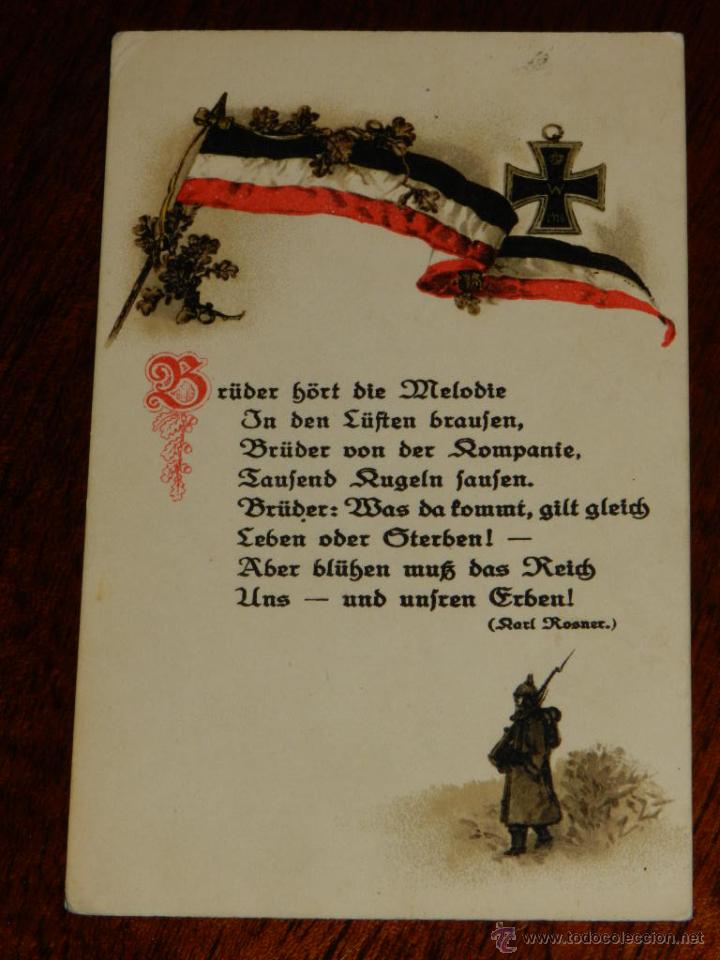 W
Brüder hört die Melodie
In den Lüften brausen,
Brüder von der Kompanie,
Tausend Kugeln sausen.
Brüder: Was da kommt, gilt gleich
Leben oder Sterben! —
Aber blühen muß das Reich
Uns — und unsren Erben!
(Karl Rosner.)
© www.todocoleccion.net